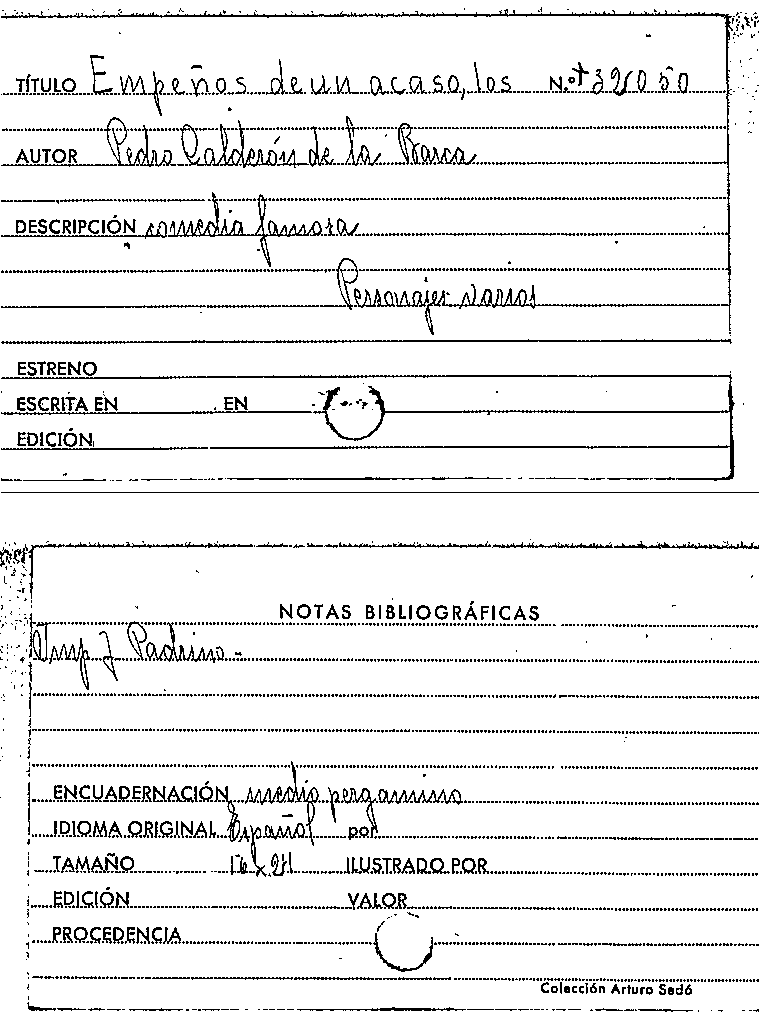 TÍTULO Empeños de un acaso, los N.º
AUTOR Pedro Calderón de la Barca
DESCRIPCIÓN comedia famosa
Personajes varios
ESTRENO
ESCRITA EN EN
EDICIÓN
NOTAS BIBLIOGRÁFICAS
Imp J Padrino -
ENCUADERNACIÓN medio pergamino
IDIOMA ORIGINAL Español por
TAMAÑO ILUSTRADO POR
EDICIÓN VALOR
PROCEDENCIA
Colección Arturo Sedó